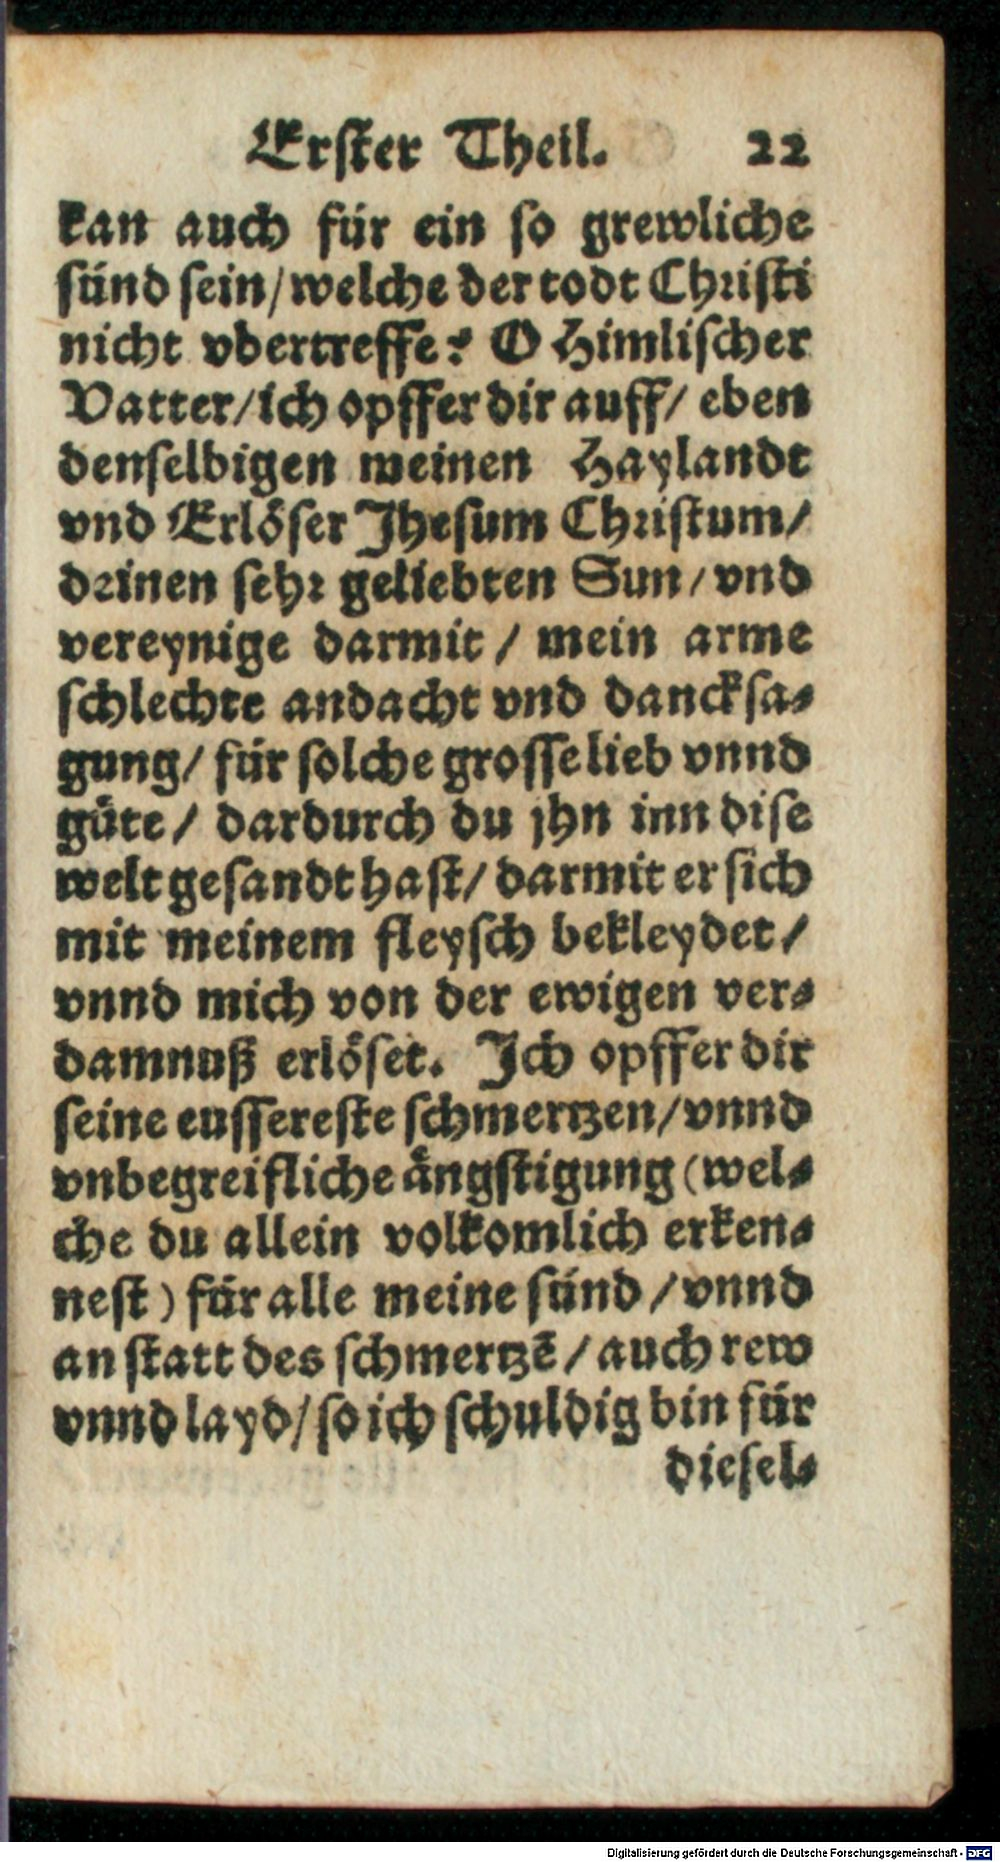 Erster Theil. 22
kan auch für ein so grewliche
sünd sein/ welche der todt Christi
nicht vbertreffe? O Himlischer
Vatter/ ich opffer dir auff/ eben
denselbigen meinen Haylandt
vnd Erlöser Jhesum Christum/
drinen sehr geliebten Sun/ vnd
vereynige darmit/ mein arme
schlechte andacht vnd dancksa-
gung/ für solche grosse lieb vnnd
güte/ dardurch du jhn inn dise
welt gesandt hast/ darmit er sich
mit meinem fleysch bekleydet/
vnnd mich von der ewigen ver-
damnuß erlöset. Jch opffer dir
seine eussereste schmertzen/ vnnd
vnbegreifliche ängstigung (wel-
che du allein volkomlich erken-
nest) für alle meine sünd/ vnnd
an statt des schmertzē/ auch rew
vnnd layd/ so ich schuldig bin für
diesel-
Digitalisierung gefördert durch die Deutsche Forschungsgemeinschaft - DFG